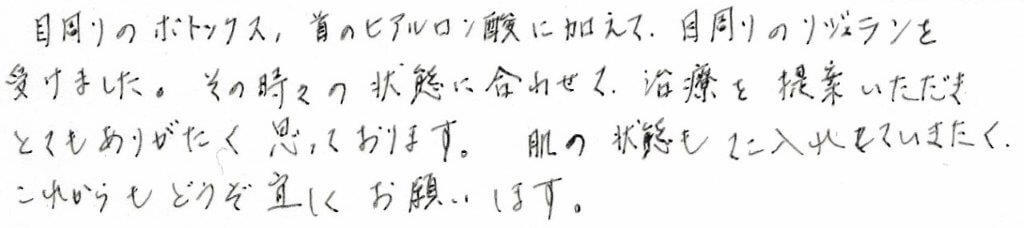 目周りのボトックス, 首のヒアルロン酸に加えて、目周りのリジュランを
受けました。その時々の状態に合わせて、治療を提案いただき
とてもありがたく思っております。肌の状態も
これからもどうぞ宜しくお願いします。